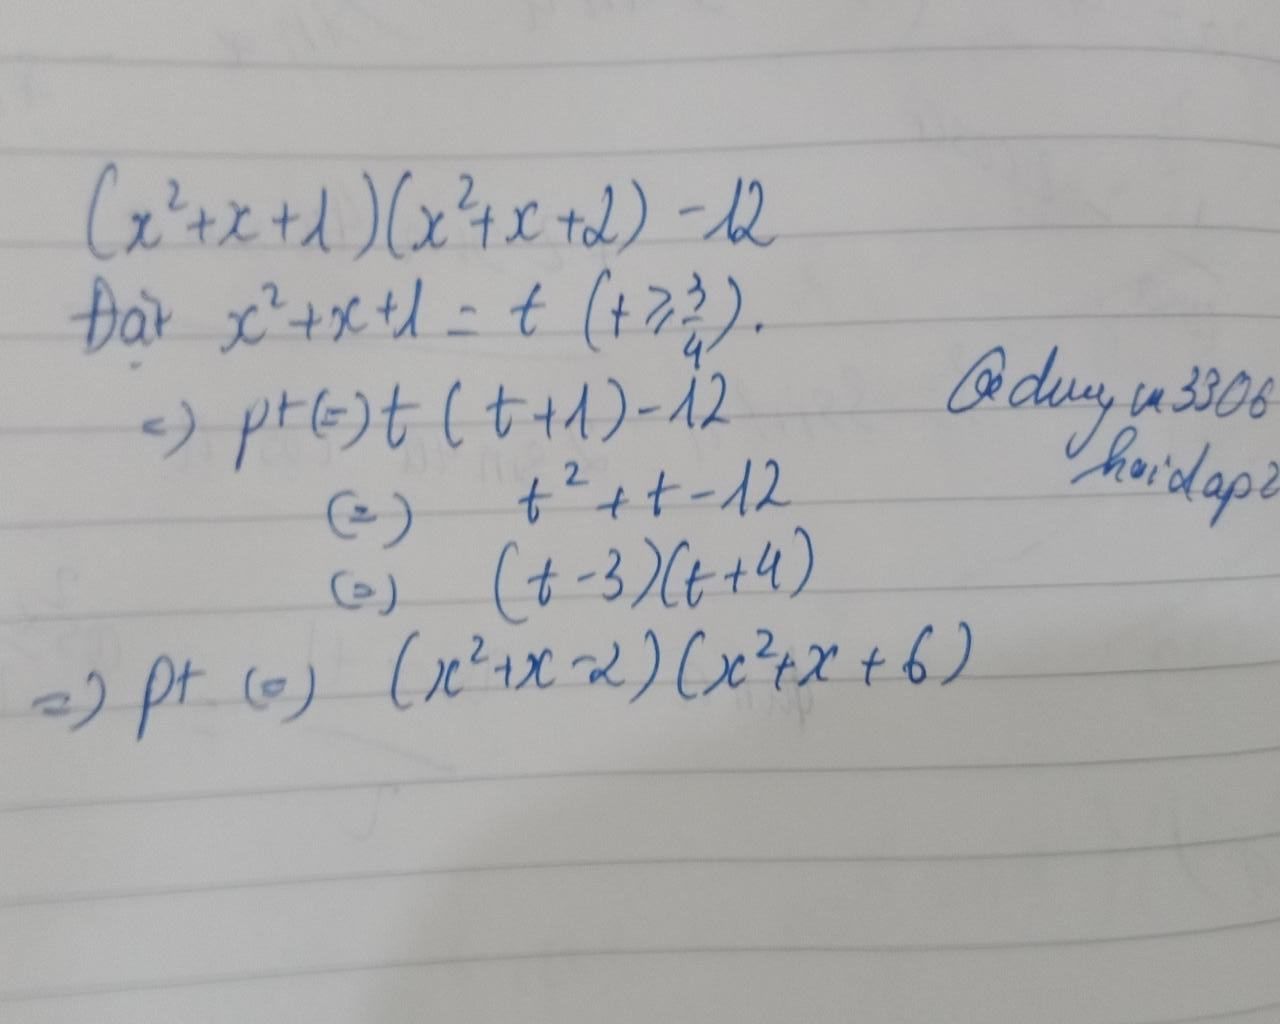 (x²+x+1)(x²+x+2) -12
Đặt x²+x+1 = t (t ⩾ 3/4).
=) pt (=) t (t+1) -12
(=) t² + t - 12
(=) (t-3)(t+4)
=) pt (=) (x²+x-2)(x²+x+6)
3306
hoidap2